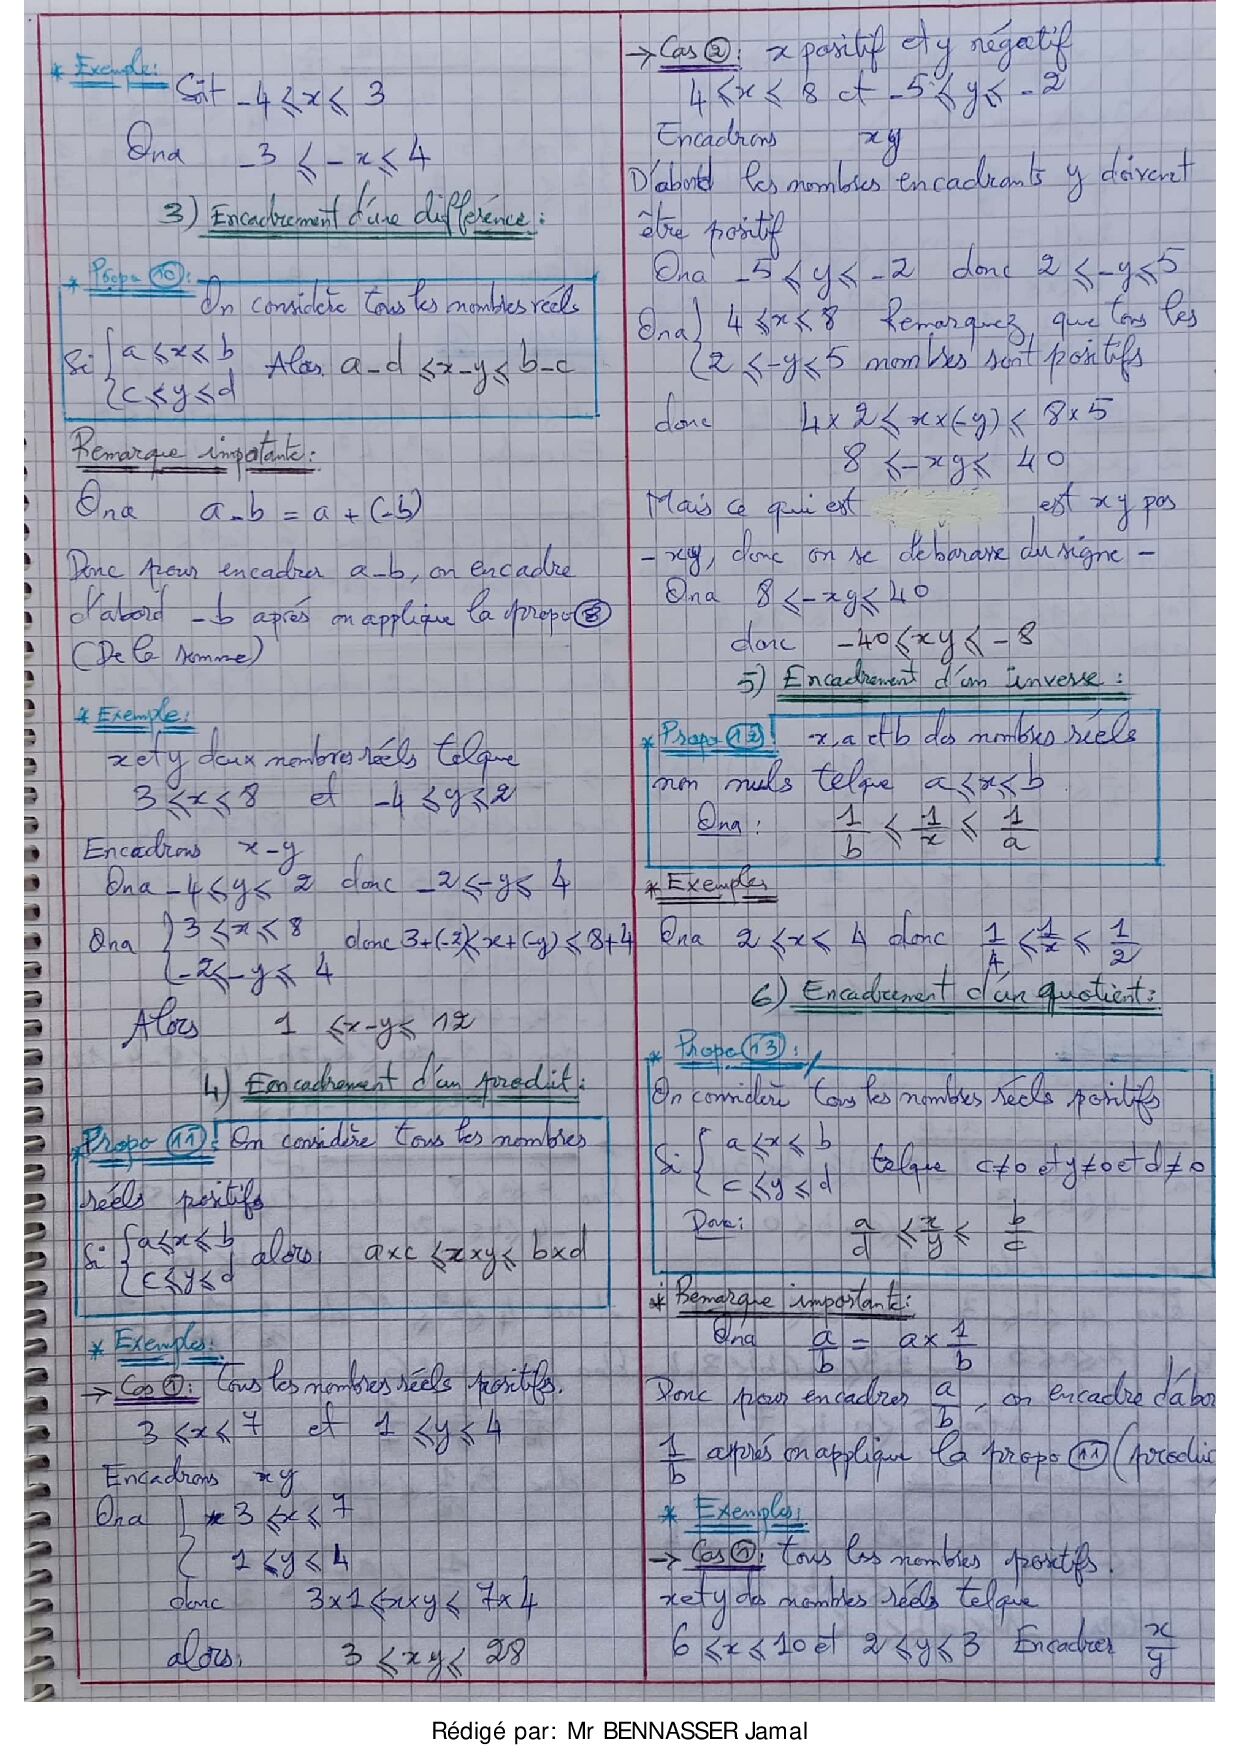 * Exemple:
Soit -4 ⩽ x ⩽ 3
On a -3 ⩽ -x ⩽ 4
3) Encadrement d'une différence :
* Propo ⑩ :
On considère tous les nombres réels
Si { a ⩽ x ⩽ b Alors a-d ⩽ x-y ⩽ b-c
c ⩽ y ⩽ d
Remarque impotante :
On a a-b = a + (-b)
Donc pour encadrer a-b, on encadre
d'abord -b aprés on applique la propo ⑧
(De la somme)
* Exemple :
x et y deux nombres réels telque
3 ⩽ x ⩽ 8 et -4 ⩽ y ⩽ 2
Encadrons x-y
On a -4 ⩽ y ⩽ 2 donc -2 ⩽ -y ⩽ 4
On a { 3 ⩽ x ⩽ 8 donc 3+(-2) ⩽ x+(-y) ⩽ 8+4
-2 ⩽ -y ⩽ 4
Alors 1 ⩽ x-y ⩽ 12
4) Encadrement d'un produit :
* Propo ⑪ : On considère tous les nombres
réels positifs
Si { a ⩽ x ⩽ b alors a×c ⩽ x×y ⩽ b×d
c ⩽ y ⩽ d
* Exemples :
→ Cas ① : tous les nombres réels positifs.
3 ⩽ x ⩽ 7 et 1 ⩽ y ⩽ 4
Encadrons xy
On a { 3 ⩽ x ⩽ 7
1 ⩽ y ⩽ 4
donc 3×1 ⩽ x×y ⩽ 7×4
alors, 3 ⩽ xy ⩽ 28
→ Cas ② : x positif et y négatif
4 ⩽ x ⩽ 8 et -5 ⩽ y ⩽ -2
Encadrons xy
D'abord les nombres encadrants y doivent
être positif
On a -5 ⩽ y ⩽ -2 donc 2 ⩽ -y ⩽ 5
On a { 4 ⩽ x ⩽ 8 Remarquez que tous les
2 ⩽ -y ⩽ 5 nombres sont positifs
donc 4×2 ⩽ x×(-y) ⩽ 8×5
8 ⩽ -xy ⩽ 40
Mais ce qui est est xy pas
-xy, donc on se débarasse du signe -
On a 8 ⩽ -xy ⩽ 40
donc -40 ⩽ xy ⩽ -8
5) Encadrement d'un inverse :
* Propo ⑫ : x, a et b des nombres réels
non nuls telque a ⩽ x ⩽ b
On a : 1/b ⩽ 1/x ⩽ 1/a
* Exemples
On a 2 ⩽ x ⩽ 4 donc 1/4 ⩽ 1/x ⩽ 1/2
6) Encadrement d'un quotient :
* Propo ⑬ :
On considère tous les nombres réels positifs
Si { a ⩽ x ⩽ b telque c≠0 et y≠0 et d≠0
c ⩽ y ⩽ d
Donc : a/d ⩽ x/y ⩽ b/c
* Remarque importante :
On a a/b = a × 1/b
Donc pour encadrer a/b, on encadre d'abo
1/b aprés on applique la propo ⑪ (produi
* Exemples :
→ Cas ① : tous les nombres positifs.
x et y des nombres réels telque
6 ⩽ x ⩽ 10 et 2 ⩽ y ⩽ 3 Encadrer x/y
Rédigé par: Mr BENNASSER Jamal